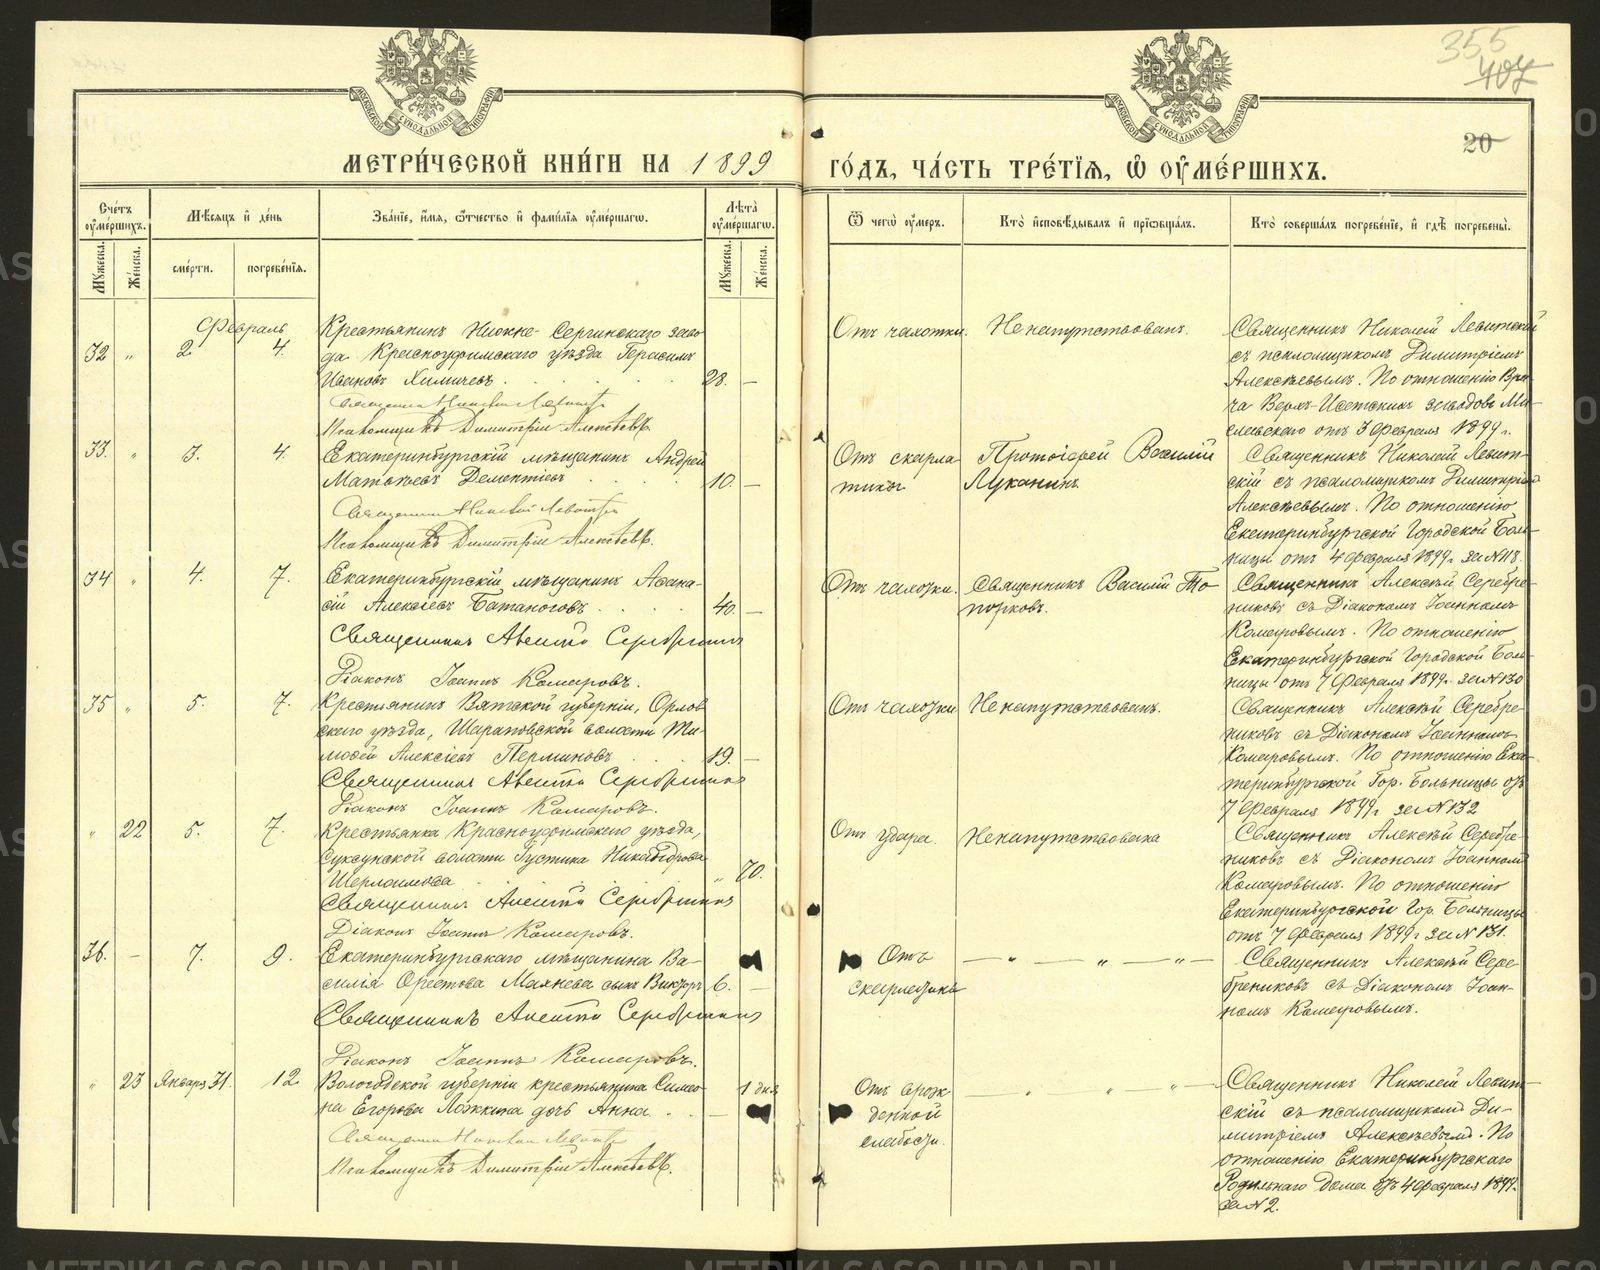 355
407
20
МЕТРИ́ЧЕСКОЙ КНИ́ГИ НА 1899
ГО́ДЪ, ЧА́СТЬ ТРЕ́ТЇѦ, Ѡ҆ ОУ҆МЕ́РШИХЪ.
Сче́тъ оу҆ме́ршихъ.
Мꙋ́жеска.
Же́нска.
Мѣ́сѧцъ и҆ де́нь
сме́рти.
погребе́нїѧ.
Зва́нїе, и҆́мѧ, ѻ҆́тчество и҆ фами́лїѧ оу҆ме́ршагѡ.
Лѣ́та оу҆ме́ршагѡ.
Мꙋ́жеска.
Же́нска.
Ѿ чегѡ̀ оу҆́меръ.
Кто̀ и҆сповѣ́дывалъ и҆ прїѡбща́лъ.
Кто̀ соверша́лъ погребе́нїе, и҆ гдѣ̀ погребены̀.
Февраль
32 „ 2. 4.
Крестьянинъ Нижне-Сергинскаго заво-
да Красноуфимскаго уѣзда Герасимъ
Ивановъ Химичевъ . . . . 28. —
Священникъ Николай Левитскій
Псаломщикъ Димитрій Алексѣевъ.
Отъ чахотки. Ненапутствованъ.
Священникъ Николай Левитскій
съ псаломщикомъ Димитріемъ
Алексѣевымъ. По отношенію Вра-
ча Верхъ-Исетскихъ заводовъ Ми-
славскаго отъ 3 Февраля 1899 г.
33. „ 3. 4.
Екатеринбургскій мѣщанинъ Андрей
Матвѣевъ Дементьевъ . . . . 10. —
Священникъ Николай Левитскій
Псаломщикъ Димитрій Алексѣевъ.
Отъ скарла-
тины
Протоіерей Василій
Луканинъ.
Священникъ Николай Левит-
скій съ псаломщикомъ Димитріемъ
Алексѣевымъ. По отношенію
Екатеринбургской Городской Боль-
ницы отъ 4 Февраля 1899 г. за № 118.
34 „ 4. 7.
Екатеринбургскій мѣщанинъ Афана-
сій Алексѣевъ Батаноговъ . . . . 40. —
Священникъ Алексѣй Серебрениковъ
Діаконъ Іоаннъ Комаровъ.
Отъ чахотки.
Священникъ Василій То-
порковъ.
Священникъ Алексѣй Серебре-
никовъ съ Діакономъ Іоанномъ
Комаровымъ. По отношенію
Екатеринбургской Городской Боль-
ницы отъ 7 Февраля 1899 г. за № 130
35 „ 5. 7.
Крестьянинъ Вятской губерніи, Орлов-
скаго уѣзда, Шараповской волости Ти-
мофей Алексѣевъ Перминовъ . . . 19. —
Священникъ Алексѣй Серебрениковъ
Діаконъ Іоаннъ Комаровъ.
Отъ чахотки
Ненапутствованъ.
Священникъ Алексѣй Серебре-
никовъ съ Діакономъ Іоанномъ
Комаровымъ. По отношенію Ека-
теринбургской Гор. Больницы отъ
7 Февраля 1899 г. за № 132
„ 22 5. 7.
Крестьянка Красноуфимскаго уѣзда,
Суксунской волости Густина Никифорова
„ 70.
Священникъ Алексѣй Серебрениковъ
Діаконъ Іоаннъ Комаровъ.
Отъ удара.
Ненапутствована
Священникъ Алексѣй Серебре-
никовъ съ Діакономъ Іоанномъ
Комаровымъ. По отношенію
Екатеринбургской Гор. Больницы
отъ 7 Февраля 1899 г. за № 131.
36. — 7. 9.
Екатеринбургскаго мѣщанина Ва-
силія Орестова Махнева сынъ Викторъ 6. —
Священникъ Алексѣй Серебрениковъ
Діаконъ Іоаннъ Комаровъ.
Отъ
скарлатины
— „ — „ — „ —
Священникъ Алексѣй Сере-
брениковъ съ Діакономъ Іоан-
номъ Комаровымъ.
„ 23 Января 31. 12
Вологодской губерніи крестьянина Симео-
на Егорова Ложкина дочь Анна . . — 1 дня
Священникъ Николай Левитскій
Псаломщикъ Димитрій Алексѣевъ.
Отъ врож-
денной
слабости.
— „ „ „ —
Священникъ Николай Левит-
скій съ псаломщикомъ Ди-
митріемъ Алексѣевымъ. По
отношенію Екатеринбургскаго
Родильнаго дома отъ 4 Февраля 1899 г.
за № 2.